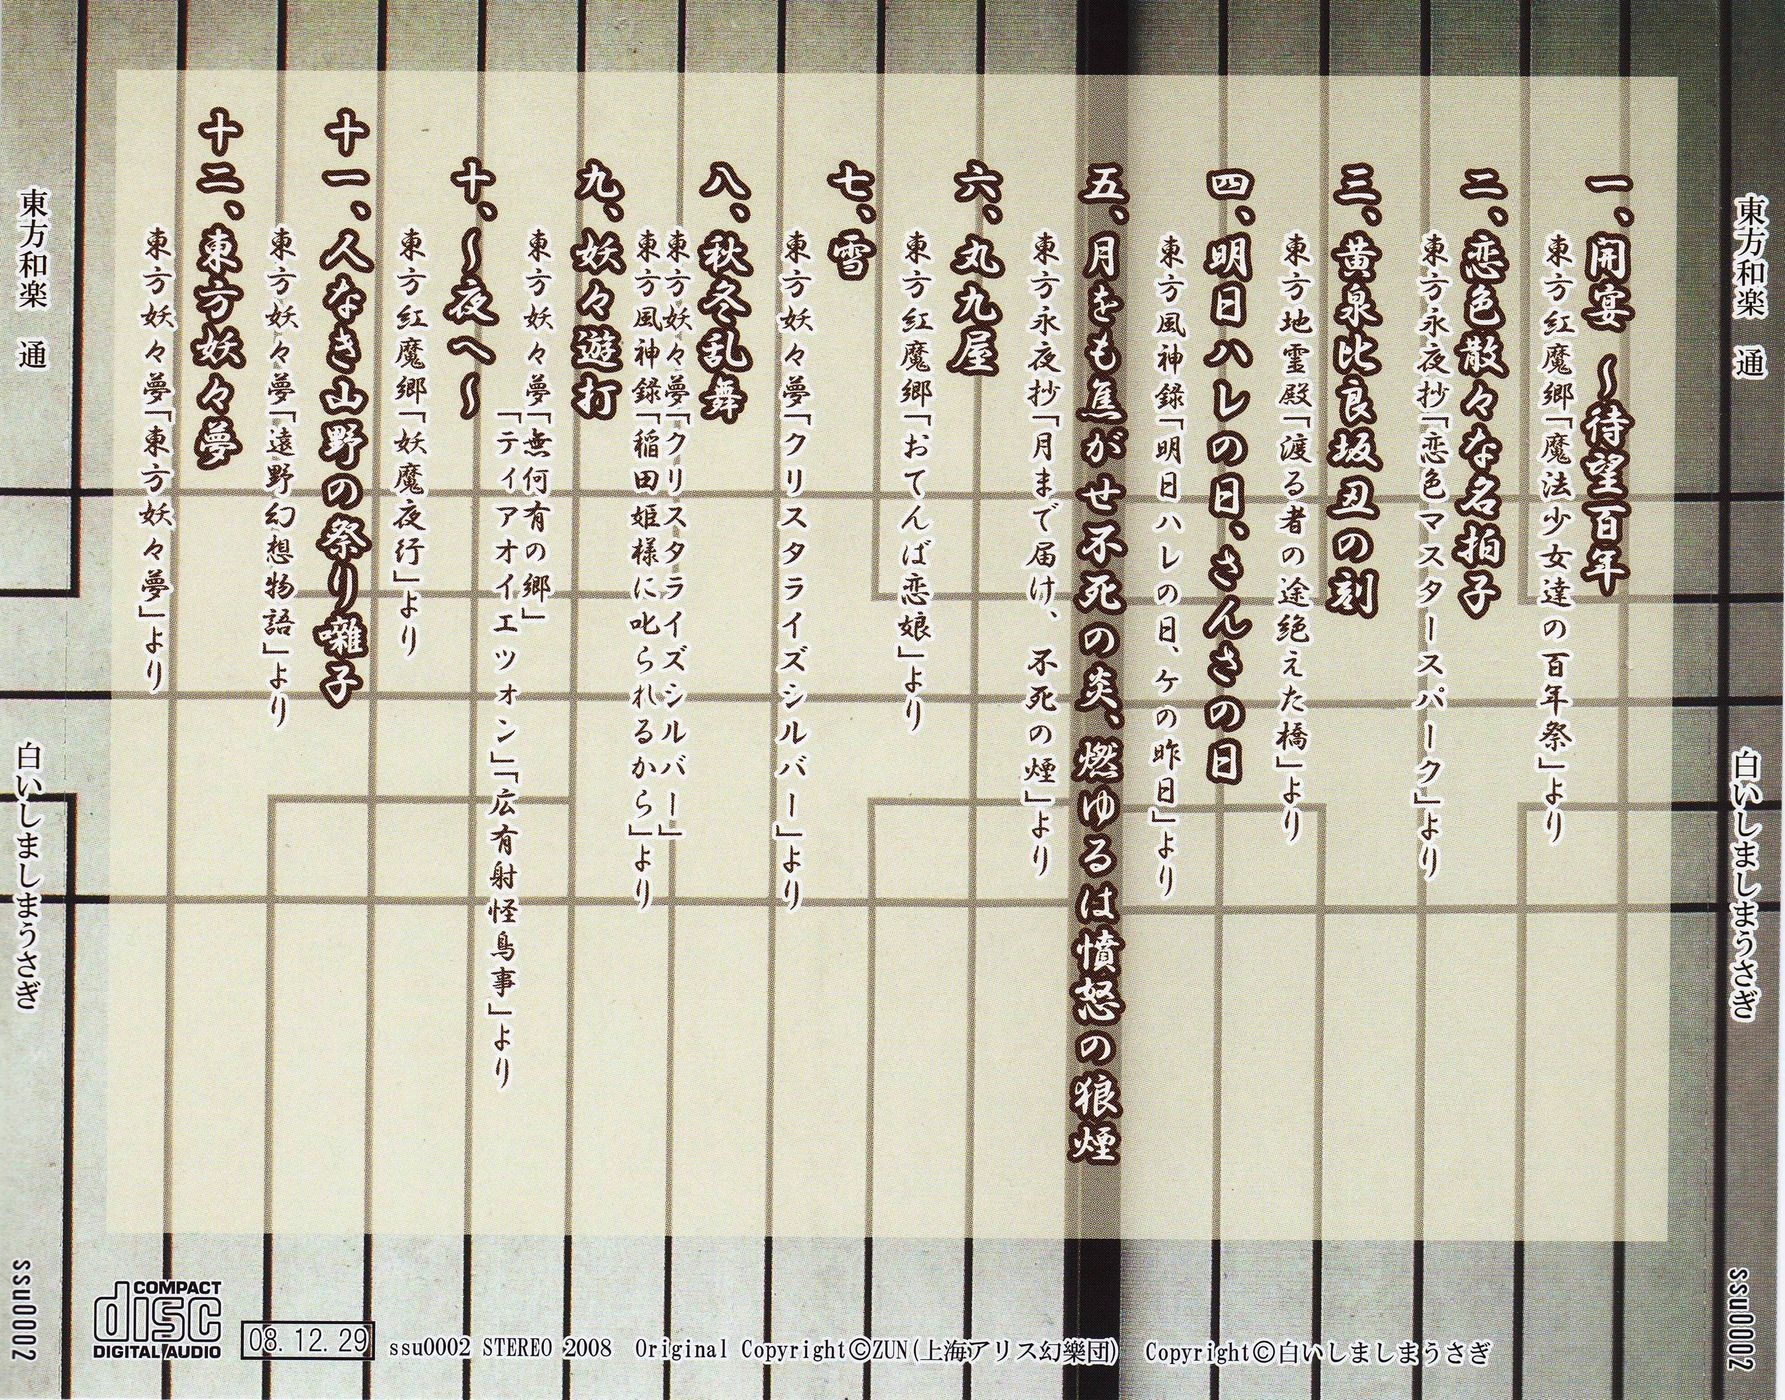 東方和楽 通
白いしましまうさぎ
ssu0002
一、開宴 ～待望百年
東方紅魔郷「魔法少女達の百年祭」より
二、恋色散々な名拍子
東方永夜抄「恋色マスタースパーク」より
三、黄泉比良坂丑の刻
東方地霊殿「渡る者の途絶えた橋」より
四、明日ハレの日、さんさの日
東方風神録「明日ハレの日、ケの昨日」より
五、月をも焦がせ不死の炎、燃ゆるは憤怒の狼煙
東方永夜抄「月まで届け、不死の煙」より
六、丸九屋
東方紅魔郷「おてんば恋娘」より
七、雪
東方妖々夢「クリスタライズシルバー」より
八、秋冬乱舞
東方妖々夢「クリスタライズシルバー」
東方風神録「稲田姫様に叱られるから」より
九、妖々遊打
東方妖々夢「無何有の郷」
「ティアオイエツォン」「広有射怪鳥事」より
十、～夜へ～
東方紅魔郷「妖魔夜行」より
十一、人なき山野の祭り囃子
東方妖々夢「遠野幻想物語」より
十二、東方妖々夢
東方妖々夢「東方妖々夢」より
東方和楽 通
白いしましまうさぎ
ssu0002
COMPACT
disc
DIGITAL AUDIO
08.12.29
ssu0002 STEREO 2008 Original Copyright©ZUN(上海アリス幻樂団) Copyright©白いしましまうさぎ